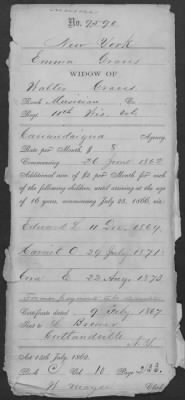 No. 9590.
New York
Emma Graves
WIDOW OF
Walter Graves
Rank Musician Co.
Regt. 10th Wis. Vols
Canandaigua Agency
Rate per Month, $ 8
Commencing 26 June 1862
Additional sum of $2 per Month for each
of the following children, until arriving at the age
of 16 years, commencing July 25, 1866, viz:
Edward L 11 Dec. 1869.
Harriet O 29 July 1871
Cora E 22 Aug. 1873
Certificate dated 9 July 1867
Sent to Brewer
Cortlandville
N.Y.
Act 14th July, 1862.
Book C Vol. 10 Page 233.
Clerk